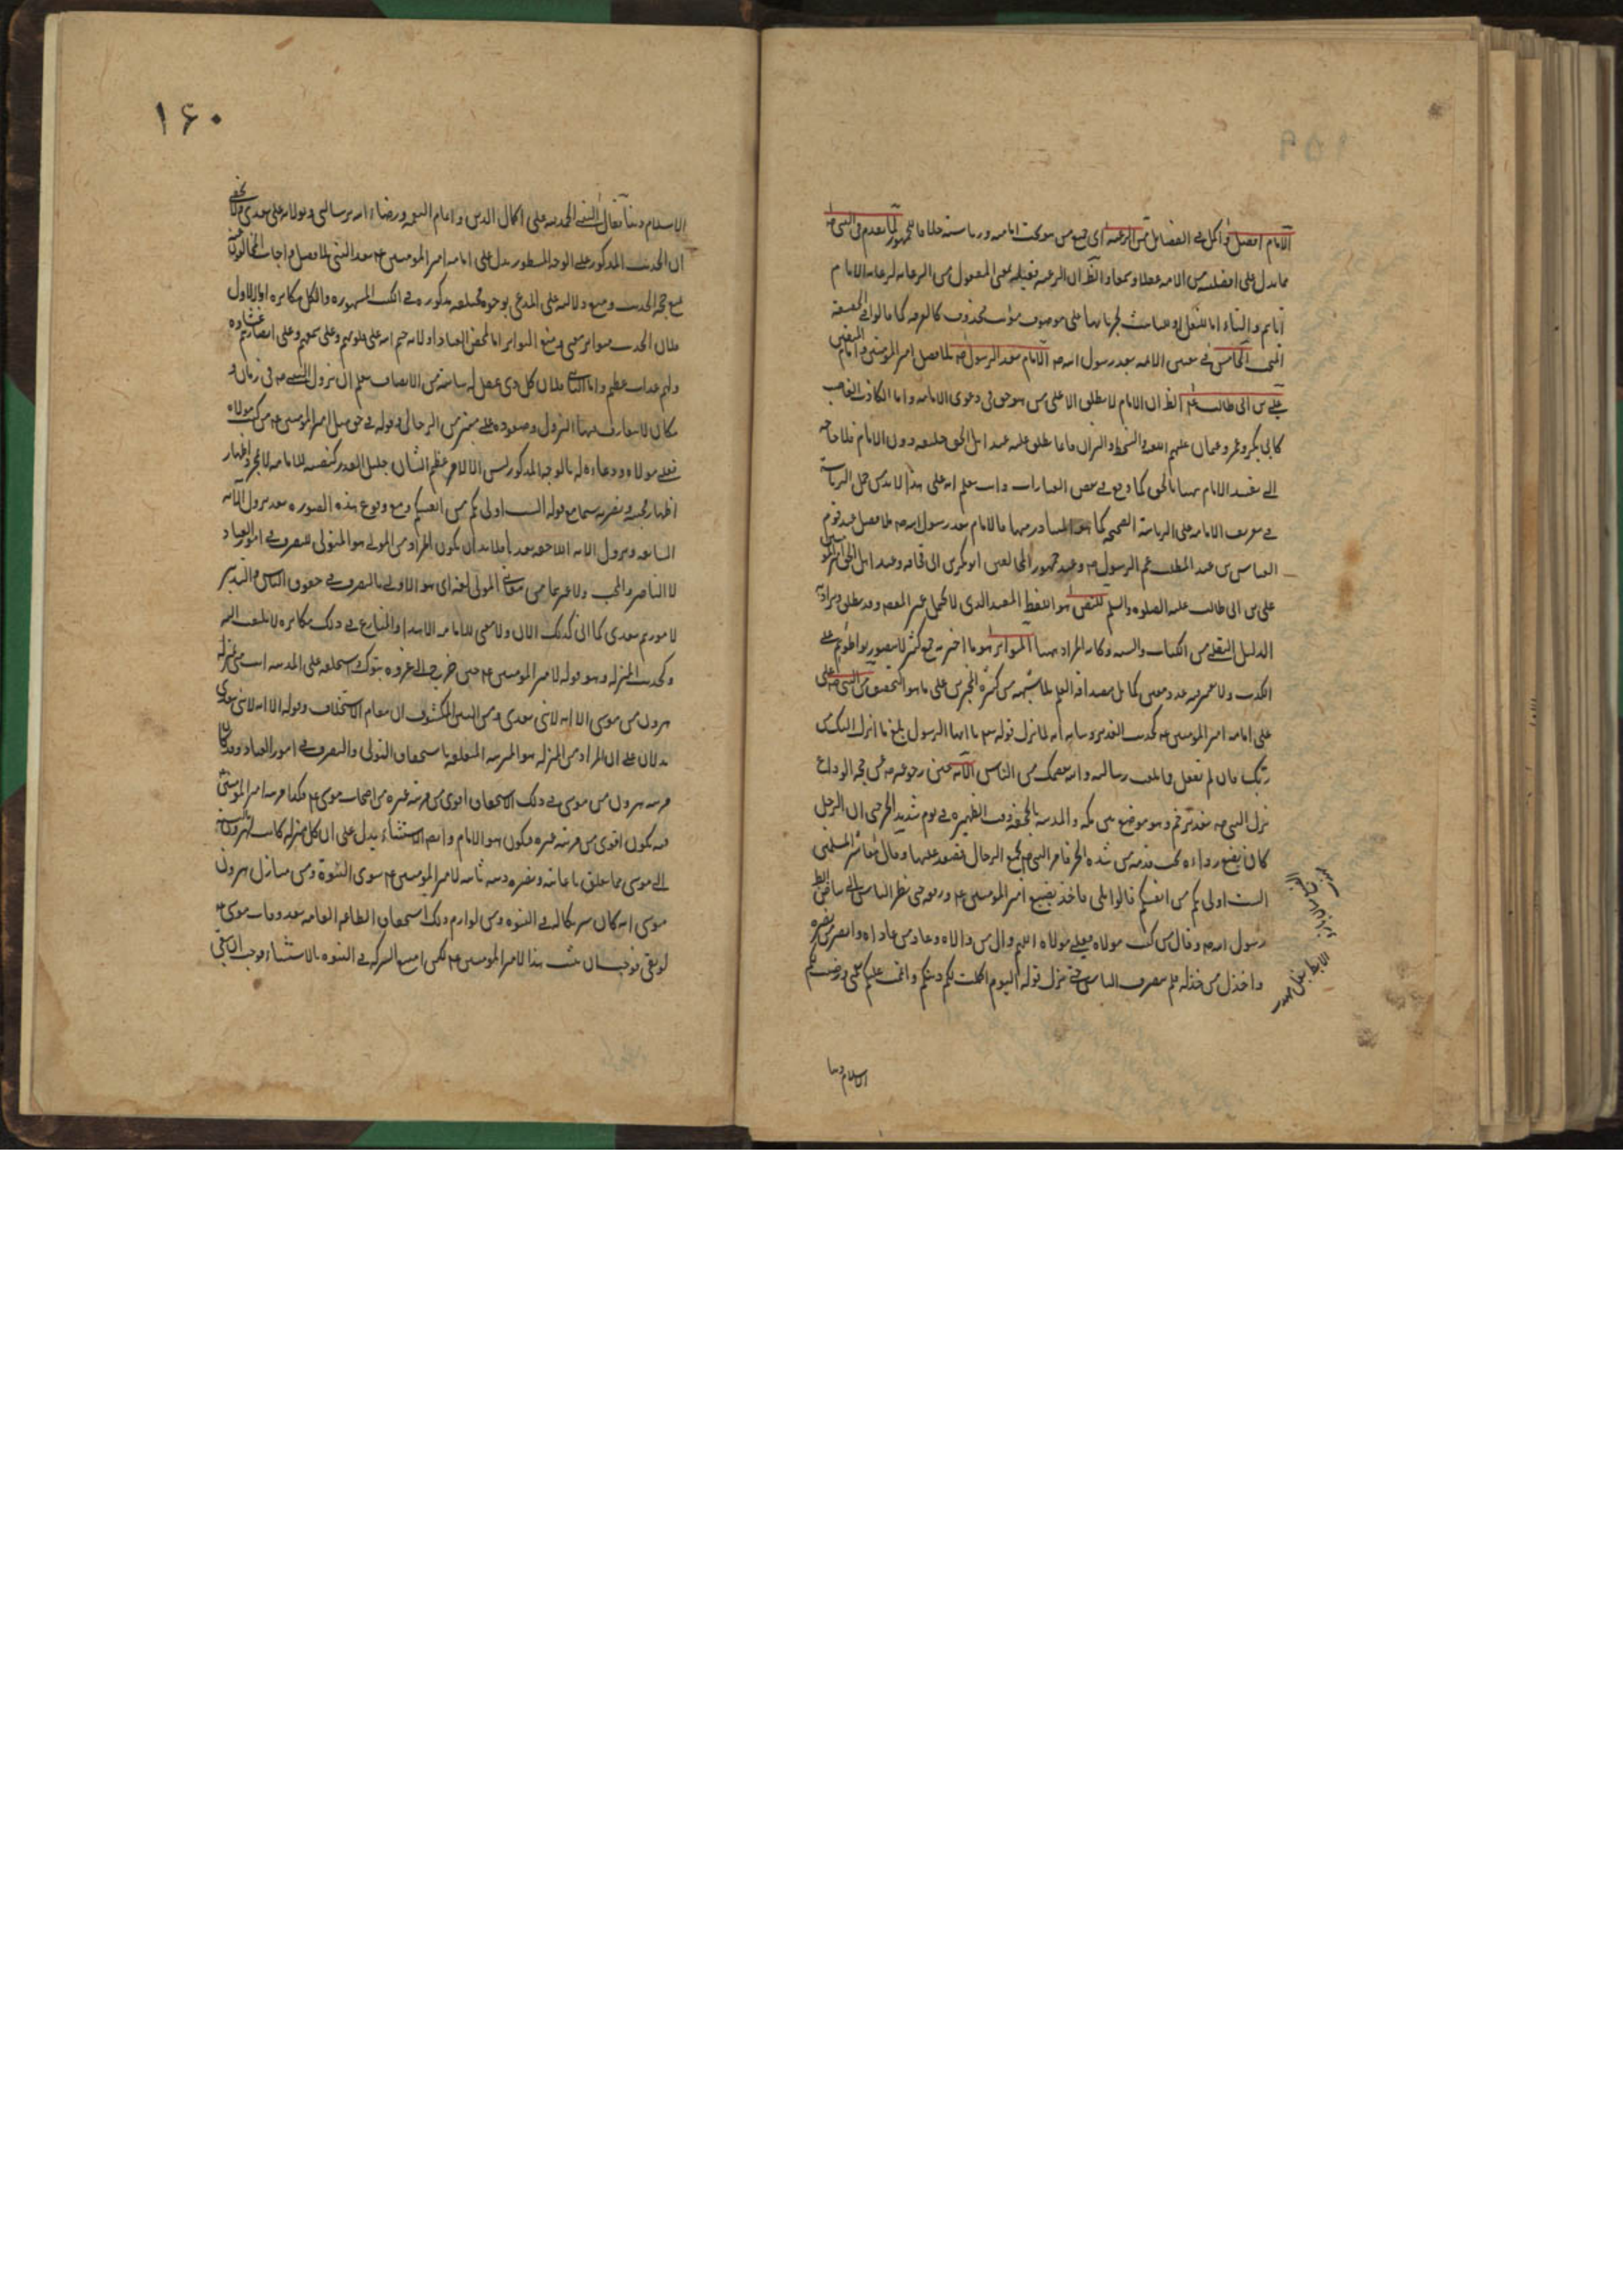 الامام افضل واكمل فى الفضايل من الرعية اى جميع من هو تحت امامته ورياسته خلافا للجمهور لما تقدم فى النبى صه
مما يدل على افضليته من الامة عقلا وسمعا والظ ان الرعية فعيلة بمعنى المفعول من الرعاية لرعاية الامام
اياهم والتاء اما للنقل او للتانيث لجريانها على موصوف مؤنث محذوف كالفرقة كما قالوا فى الحقيقة
المبحث الخامس فى تعيين الائمة بعد رسول الله صه الامام بعد الرسول صه بلا فصل امير المؤمنين وامام المتقين
على بن ابى طالب ع الظ ان الامام لا يطلق الا على من هو حق فى دعوى الامامة واما الكاذب الغاصب
كابى بكر وعمر وعثمان عليهم اللعنة والنيران فانما يطلق عليه عند اهل الحق خليفة دون الامام فلا حاجة
الى تقييد الامام ههنا بالحق كما وقع فى بعض العبارات وانت تعلم انه على هذا لا بد من حمل الرياسة
فى تعريف الامامة على الرياسة الصحيحة كما هو المتبادر منها فالامام بعد رسول الله صه بلا فصل عند قوم
العباس بن عبد المطلب عم الرسول صه وعند جمهور المخالفين ابو بكر بن ابى قحافة وعند اهل الحق امير المؤمنين
على بن ابى طالب عليه الصلوة والسلم للنص هو اللفظ المفيد الذى لا يحتمل غير المقصود وقد يطلق ويراد به
الدليل النقلى من الكتاب والسنة وكانه المراد ههنا المتواتر هو ما اخبر به جمع كثير لا يتصور تواطؤهم على
الكذب ولا يعتبر فيه عدد معين كما بل مصداقه العلم بلا شبهة من كثرة المخبرين على ما هو التحقيق من النبى صه على
على امامة امير المؤمنين ع كحديث الغدير وبيانه انه لما نزل قوله تع يا ايها الرسول بلغ ما انزل اليك من
ربك فان لم تفعل فما بلغت رسالته والله يعصمك من الناس الاية حين رجوعه صه عن حجة الوداع
نزل النبى صه بغدير خم وهو موضع بين مكة والمدينة بالجحفة وقت الظهيرة فى يوم شديد الحر حتى ان الرجل
كان يضع رداءه تحت قدميه من شدة الحر فامر النبى صه بجمع الرحال فصعد عليها وقال معاشر المسلمين
الست اولى بكم من انفسكم قالوا بلى فاخذ بضبع امير المؤمنين ع ورفعه حتى نظر الناس الى بياض ابط
رسول الله صه وقال من كنت مولاه فعلى مولاه اللهم وال من والاه وعاد من عاداه وانصر من نصره
واخذل من خذله فلم يتصرف الناس حتى نزل قوله اليوم اكملت لكم دينكم واتممت عليكم نعمتى ورضيت لكم
الاسلام دينا
١۶٠
الاسلام دينا فقال النبى الحمد لله على اكمال الدين واتمام النعمة ورضاء الله برسالتى وبولاية على بعدى ولا يخفى
ان الحديث المذكور على الوجه المسطور يدل على امامة امير المؤمنين ع بعد النبى بلا فصل واجاب المخالفون
بمنع صحة الحديث ومنع دلالته على المدعى بوجوه مختلفة مذكورة فى الكتب المشهورة والكل مكابرة اما الاول
فلان الحديث متواتر معنى ومنع التواتر اما لمحض العناد او لانه ختم الله على قلوبهم وعلى سمعهم وعلى ابصارهم غشاوة
ولهم عذاب عظيم واما الثانى فلان كل ذى عقل له شائبة من الانصاف يعلم ان نزول النبى صه فى زمان و
مكان لا يتعارف فيهما النزول وصعوده على منبر من الرحال وقوله فى حق مثل امير المؤمنين ع من كنت مولاه
فعلى مولاه ودعاءه له بالوجه المذكور ليس الا لامر عظيم الشان جليل القدر كنصبه للامامة لا لمجرد اظهار
اظهار محبته ونصرته سيما مع قوله الست اولى بكم من انفسكم ومع وقوع هذه الصورة بعد نزول الاية
السابقة ونزول الاية اللاحقة بعدها فلا بد ان يكون المراد من المولى هو المتولى للتصرف فى امور العباد
لا الناصر والمحب ولا غيرهما من معانى المولى لغة اى هو الاولى بالتصرف فى حقوق الناس والتدبير
لامورهم بعدى كما انى كذلك الان ولا معنى للامامة الا هذا والمنازع فى ذلك مكابرة لا يلتفت اليه
وكحديث المنزلة وهو قوله لامير المؤمنين ع حين خرج الى غزوة تبوك واستخلفه على المدينة انت منى بمنزلة
هرون من موسى الا انه لا نبى بعدى ومن البين المكشوف ان مقام الاستخلاف وقوله الا انه لا نبى بعدى
يدلان على ان المراد من المنزلة هو المرتبة المتعلقة باستحقاق التولى والتصرف فى امور العباد وقد كان
مرتبة هرون من موسى فى ذلك الاستحقاق اقوى من مرتبة غيره من اصحاب موسى ع فكذا مرتبة امير المؤمنين
فيه يكون اقوى من مرتبة غيره فيكون هو الامام وايضا الاستثناء يدل على ان كل منزلة كانت لهرون بالنسبة
الى موسى مما يتعلق باعانته ونصره دينه ثابتة لامير المؤمنين ع سوى النبوة ومن منازل هرون
موسى انه كان شريكا له فى النبوة ومن لوازم ذلك استحقاق الطاعة العامة بعد وفات موسى ع
لو بقى فوجب ان يثبت هذا لامير المؤمنين ع لكن امتنع الشركة فى النبوة بالاستثناء فوجب ان يبقى